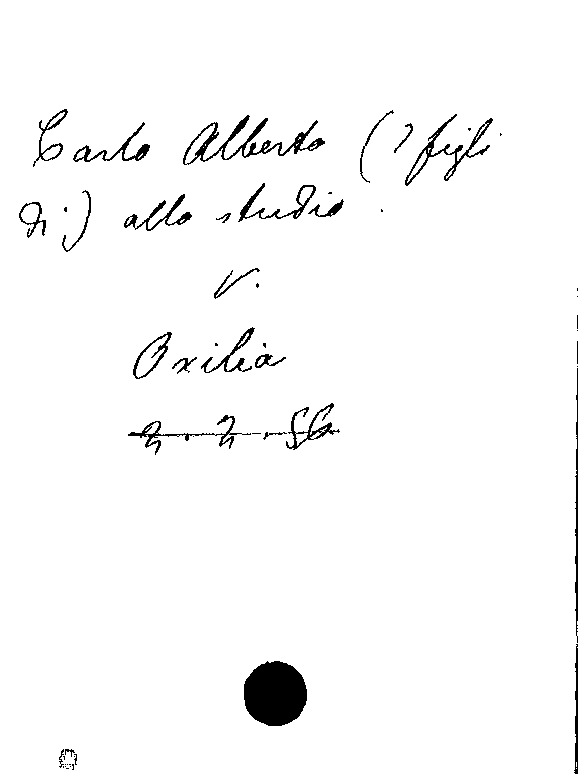 Carlo Alberto (? figli
di) allo studio.
V.
Oxilia
2.2.56